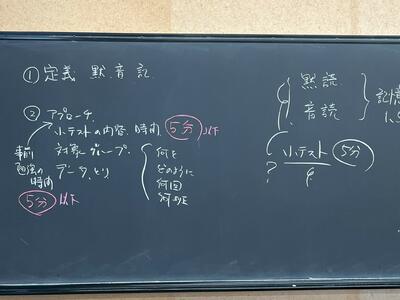 ① 定義 黙.音.記.
② アプローチ.
小テストの内容.時間 5分 以下
対象にグループ.
データ.とり
事前
勉強の
時間
5分 以下
何を
どのように
何回
黙読
音読
記憶
小テスト 5分
?